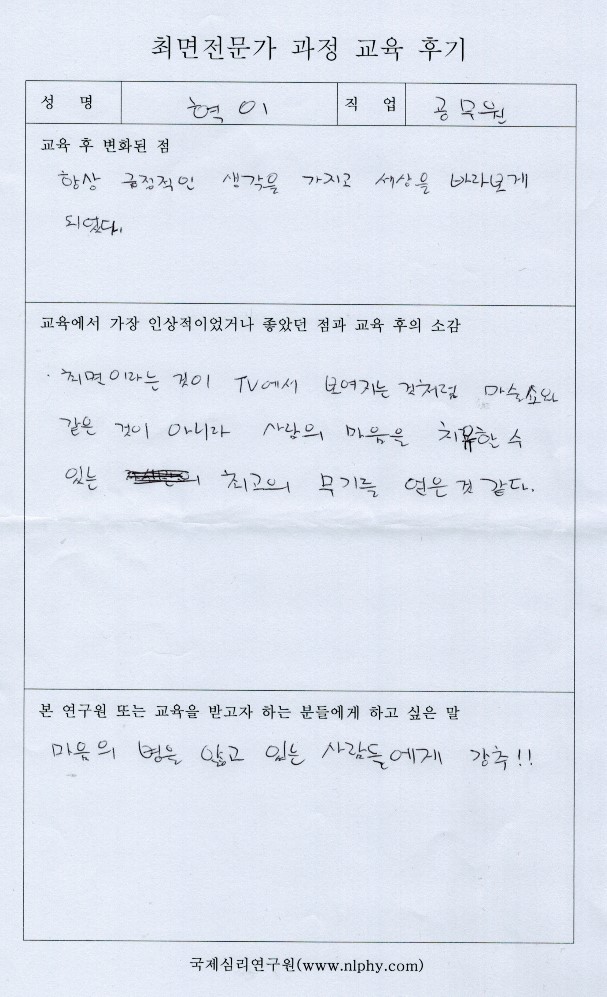 최면전문가 과정 교육 후기
성 명 혁 이 직 업 공무원
교육 후 변화된 점
항상 긍정적인 생각을 가지고 세상을 바라보게
되었다.
교육에서 가장 인상적이었거나 좋았던 점과 교육 후의 소감
· 최면이라는 것이 TV에서 보여지는 것처럼 마술쇼와
같은 것이 아니라 사람의 마음을 치유한 수
있는 최고의 무기를 얻은 것 같다.
본 연구원 또는 교육을 받고자 하는 분들에게 하고 싶은 말
마음의 병을 앓고 있는 사람들에게 강추!!
국제심리연구원(www.nlphy.com)